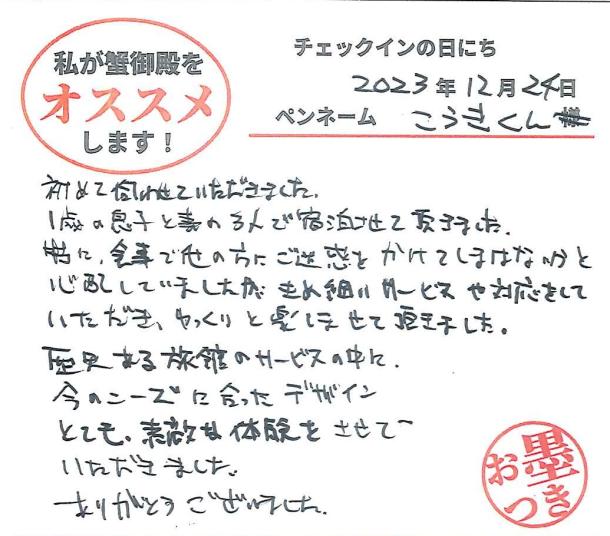 私が蟹御殿を
オススメ
します！
チェックインの日にち
2023年12月24日
ペンネーム こうきくん
初めて伺わせていただきました。
1歳の息子と妻の3人で宿泊させて頂きました。
特に、食事で他の方にご迷惑をかけてしまはないかと
心配していましたが、きめ細いサービスや対応をして
いただき、ゆっくりと楽しませて頂きました。
歴史ある旅館のサービスの中に、
今のニーズに合ったデザイン
とても、素敵な体験をさせて
いただきました。
ありがとうございました。
お墨つき